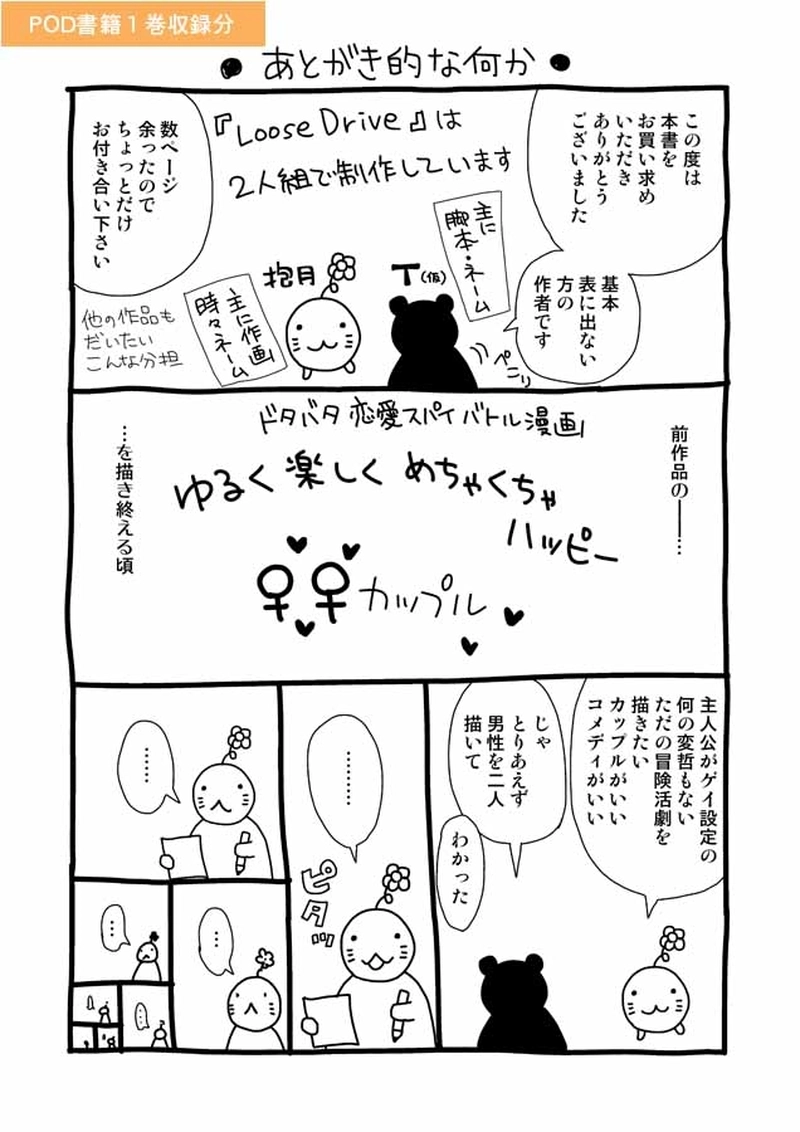 POD書籍1巻収録分
●あとがき的な何か●
この度は
本書を
お買い求め
いただき
ありがとう
ございました
『Loose Drive』は
2人組で制作しています
数ページ
余ったので
ちょっとだけ
お付き合い下さい
基本
表に出ない
方の
作者です
主に
脚本・ネーム
T(仮)
ペニリ
抱月
主に作画
時々ネーム
他の作品も
だいたい
こんな分担
前作品の――…
ドタバタ恋愛スパイバトル漫画
ゆるく楽しくめちゃくちゃ
ハッピー
♀♀カップル
…を描き終える頃
主人公がゲイ設定の
何の変哲もない
ただの冒険活劇を
描きたい
カップルがいい
コメディがいい
じゃ
とりあえず
男性を二人
描いて
わかった
………
ピタッ
……
…
…
…